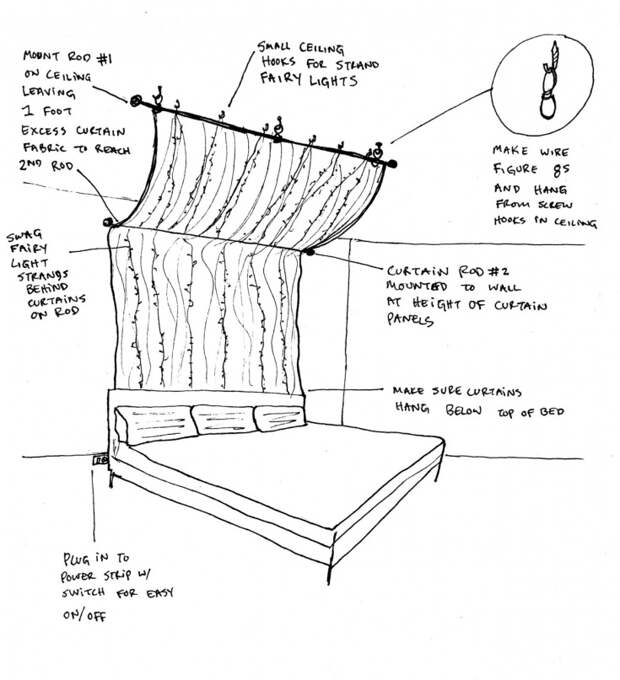 MOUNT ROD #1
ON CEILING
LEAVING
1 FOOT
EXCESS CURTAIN
FABRIC TO REACH
2ND ROD
SMALL CEILING
HOOKS FOR STRAND
FAIRY LIGHTS
MAKE WIRE
FIGURE 8S
AND HANG
FROM SCREW
HOOKS IN CEILING
SWAG
FAIRY
LIGHT
STRANDS
BEHIND
CURTAINS
ON ROD
CURTAIN ROD #2
MOUNTED TO WALL
AT HEIGHT OF CURTAIN
PANELS
MAKE SURE CURTAINS
HANG BELOW TOP OF BED
PLUG IN TO
POWER STRIP W/
SWITCH FOR EASY
ON/OFF